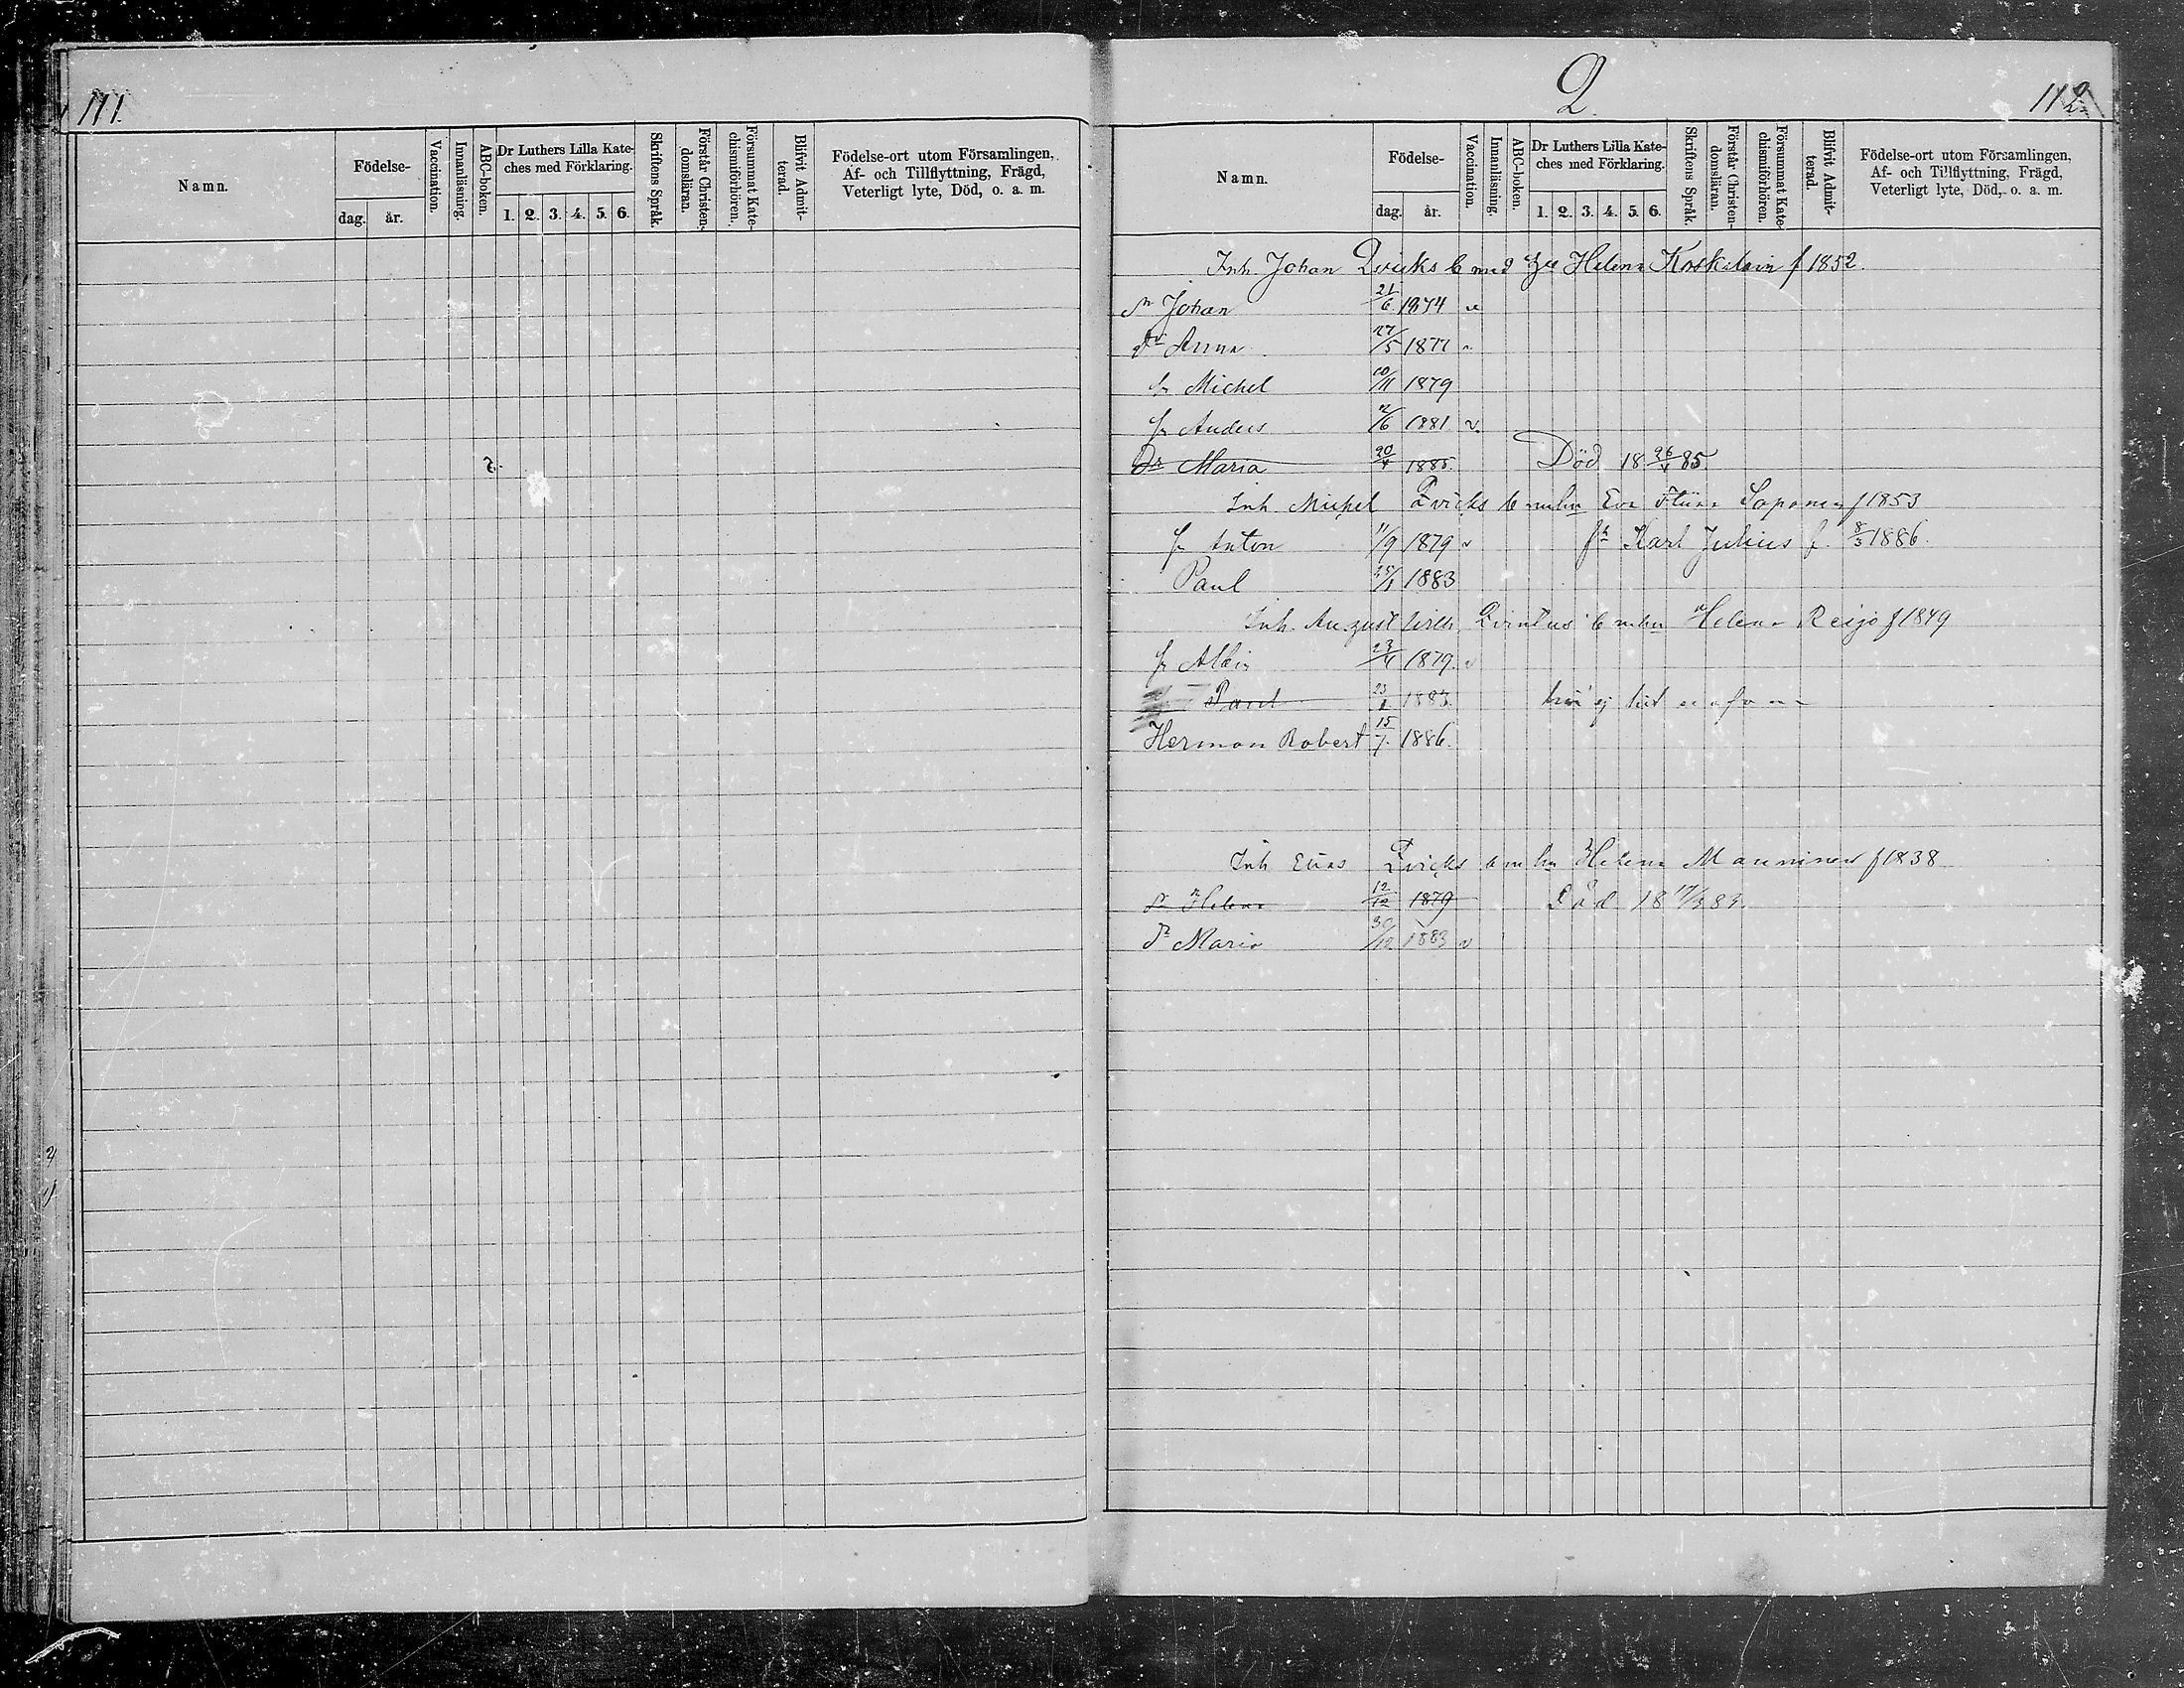 111.
Namn.
Födelse-
dag.
år.
Vaccination.
Innanläsning.
ABC-boken.
Dr Luthers Lilla Kate-
ches med Förklaring.
1. 2. 3. 4. 5. 6.
Skriftens Språk.
Förstår Christen-
domsläran.
Försummat Kate-
chismiförhören.
Blifvit Admit-
terad.
Födelse-ort utom Församlingen,
Af- och Tillflyttning, Frägd,
Veterligt lyte, Död, o. a. m.
Q
112
Namn.
Födelse-
dag.
år.
Vaccination.
Innanläsning.
ABC-boken.
Dr Luthers Lilla Kate-
ches med Förklaring.
1. 2. 3. 4. 5. 6.
Skriftens Språk.
Förstår Christen-
domsläran.
Försummat Kate-
chismiförhören.
Blifvit Admit-
terad.
Födelse-ort utom Församlingen,
Af- och Tillflyttning, Frägd,
Veterligt lyte, Död, o. a. m.
Inh. Johan Qvicks b med Helena f 1852.
Sn Johan 21/6 1874 v
Dr Anna 27/5 1877
Sn Michel 10/11 1879
Sn Anders 1881 v.
Dr Maria 20/4 1885. Död 18 26/4 85
Inh. Michel Qvicks b m hu Eva Soponen f 1853
Sn Anton 11/9 1879 v Sn Karl Julius f. 8/3 1886.
Paul 1883
Inh. August b m hu Helena Reijo f 1849
Sn Albin 1879. v
Paul 1883. ej
Herman Robert 15/7. 1886.
Inh Elias Qvicks b m hu Helena Manninen f 1838
Dr Helena 12/12 1879 Död 18 83.
Dr Maria 30/12 1883 v